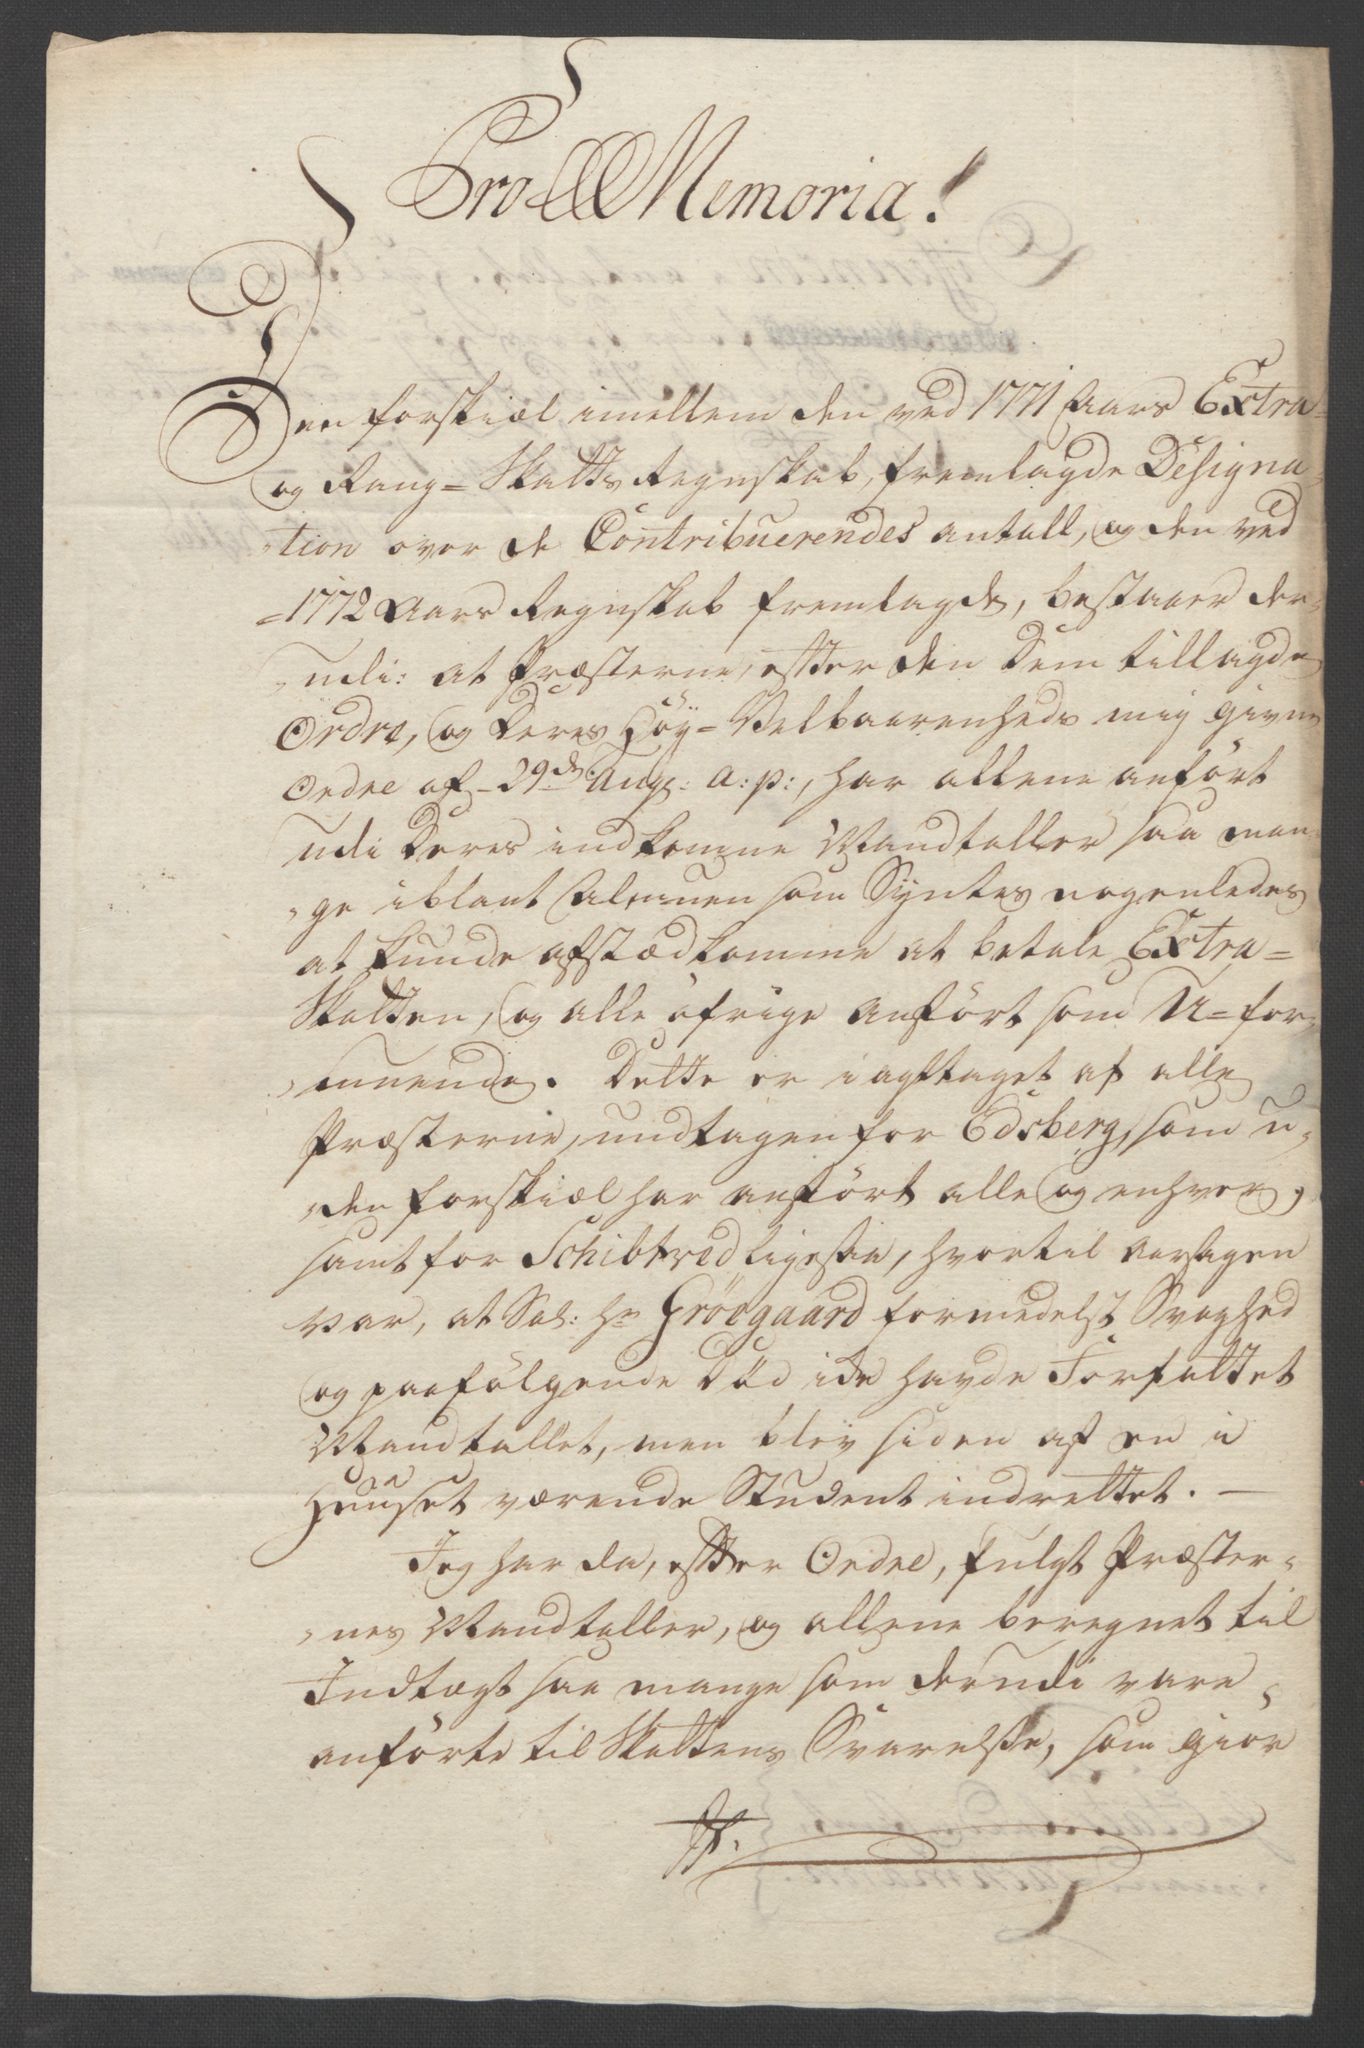 Pro Memoria!
Den forskiæl imellem den ved 1771 Aars Extra-
og Rang-Skatts Regnskab, fremlagde Designa-
tion over de Contribuerendes antall, og den ved
1772 Aars Regnskab fremlagde, bestaaer der-
udi: at Præsterne, efter den Dem tillagde
Ordre, og Deres Höy-Velbaarenheds mig givne
Ordre af 29de Aug: a: p:, har allene anfört
udi Deres indkomne Mandtaller saa man-
ge iblant Almuen som Syntes nogenledes
at kunde afstædkomme at betale Extra-
Skatten, og alle öfrige anfört som U-for-
muende. Dette er iagttaget af alle
Præsterne, undtagen for Edsberg, som u-
den forskiæl har anfört alle og enhver,
samt for Schibtved ligesaa, hvortil Aarsagen
var, at Sal: Hr Gröegaard formedelst Svaghed
og paafölgende Död icke havde Forfattet
Mandtallet, men blev siden af en i
Huuset værende Student indrettet. —
Jeg har da, efter Ordre, fulgt Præster-
nes Mandtaller, og allene beregnet til
Indtægt saa mange som derudi vare
anförte til Skattens Svarelse, som giör